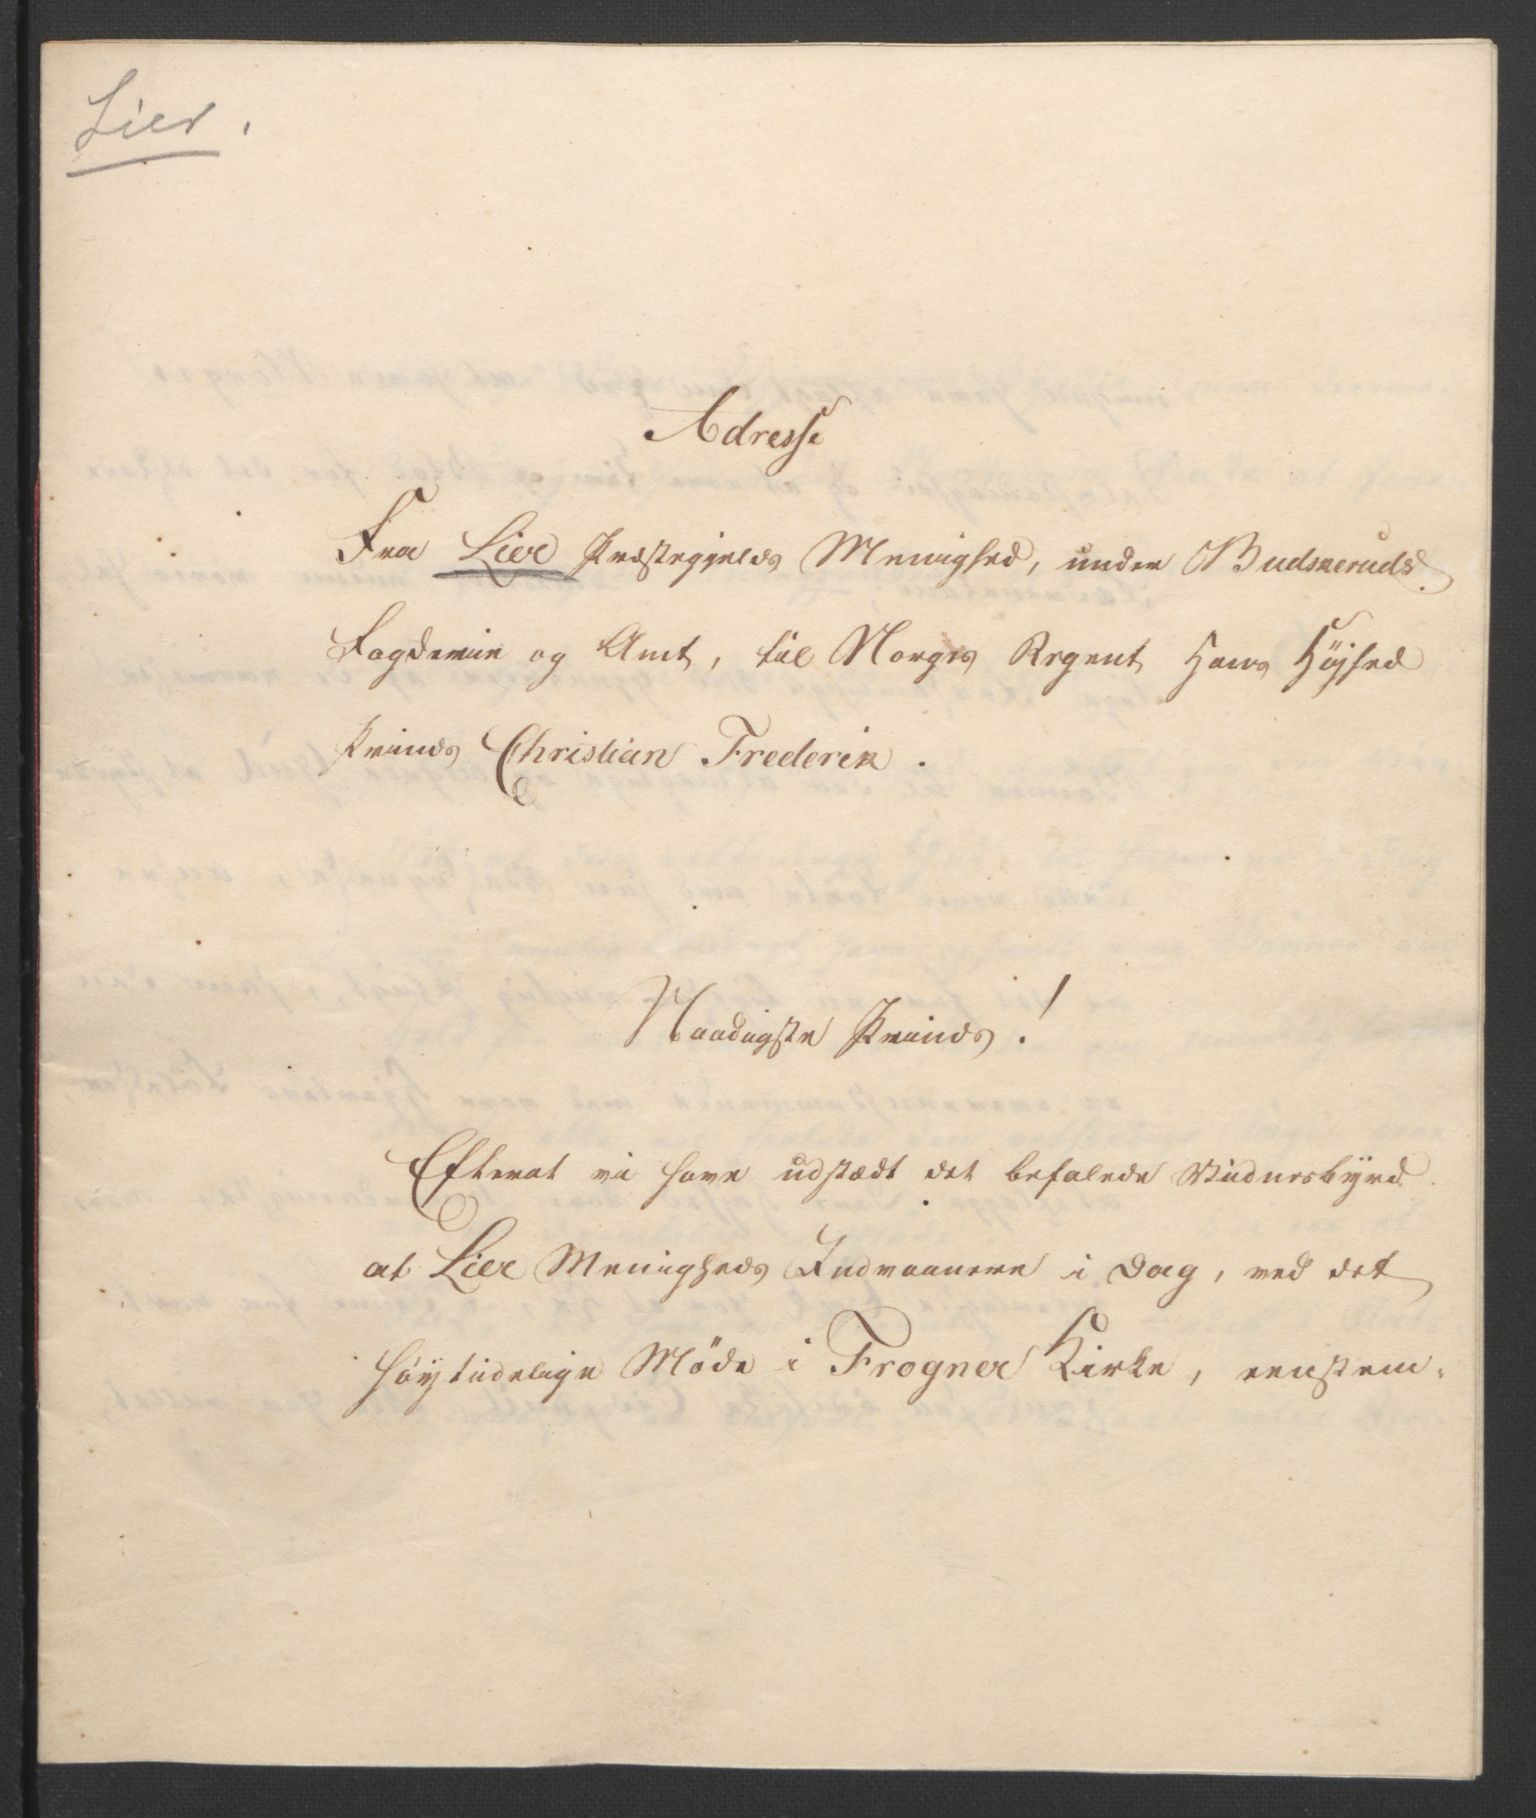 Lier.
Adresse
Fra Lier Præstegjelds Menighed, under Budskeruds
Fogderie og Amt, til Norges Regent Hans Höjhed
Prinds Christian Frederik.
Naadigste Prinds!
Efterat vi have udstædt det befalede Vidnesbyrd
at Lier Menigheds Indvaanere i Dag, ved det
höÿtidelige Möde i Frogner Kirke, eenstem-